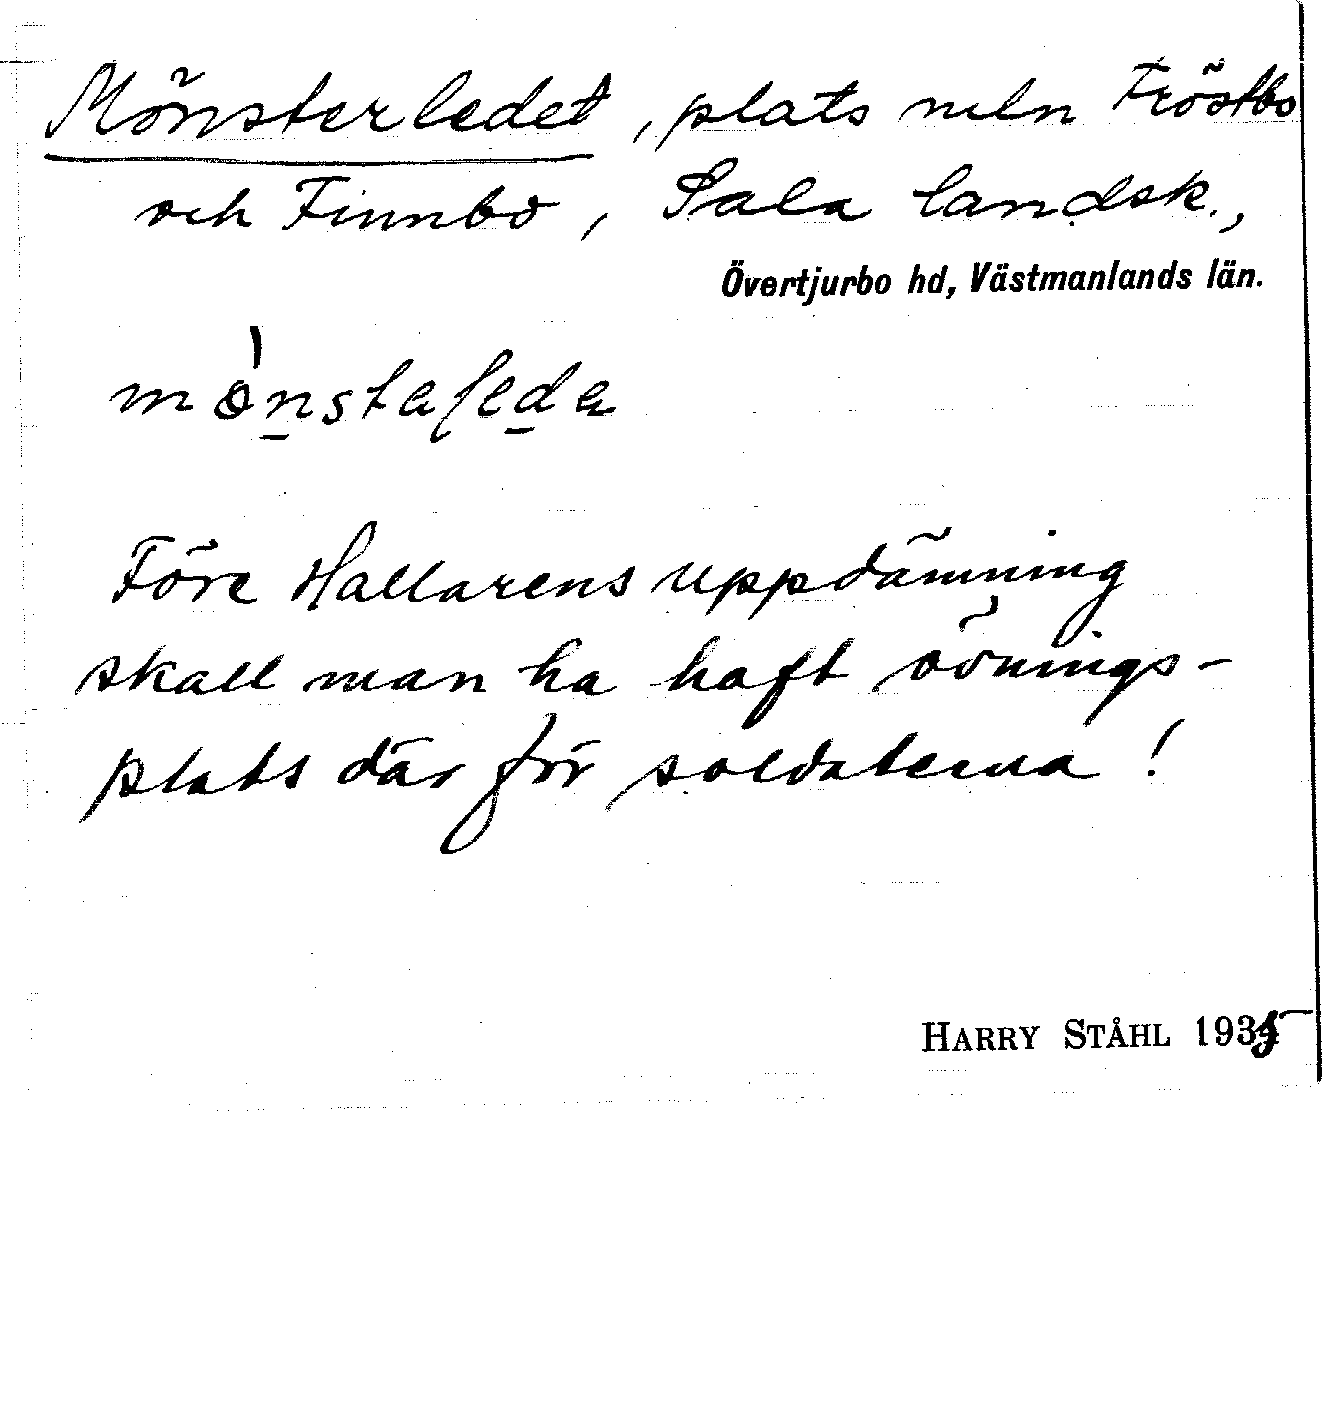 Mönsterledet, plats meln Fröstbo
och Finnbo, Sala landsk.,
Övertjurbo hd, Västmanlands län.
mònstaleda
Före Hallarens uppdämning
skall man ha haft övnings-
plats där för soldaterna!
HARRY STÅHL 1935